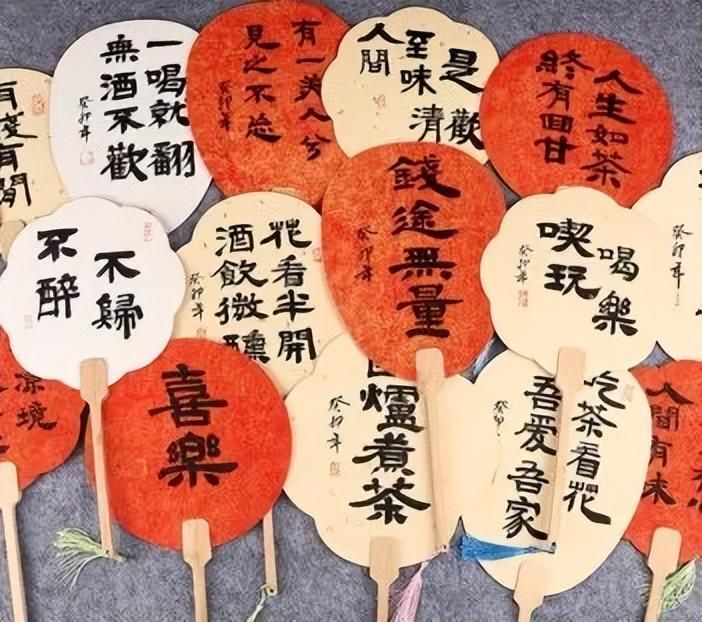 一喝就翻
無酒不歡
癸卯年
有一美人兮
見之不忘
癸卯年
人間
至味是
清歡
人生如茶
終有回甘
錢途無量
癸卯年
喫喝
玩樂
癸卯年
癸卯年
不醉
不歸
花看半開
酒飲微醺
癸卯年
喜樂
爐煮茶
癸卯年
吃茶看花
吾爱吾家
癸卯
人間有味